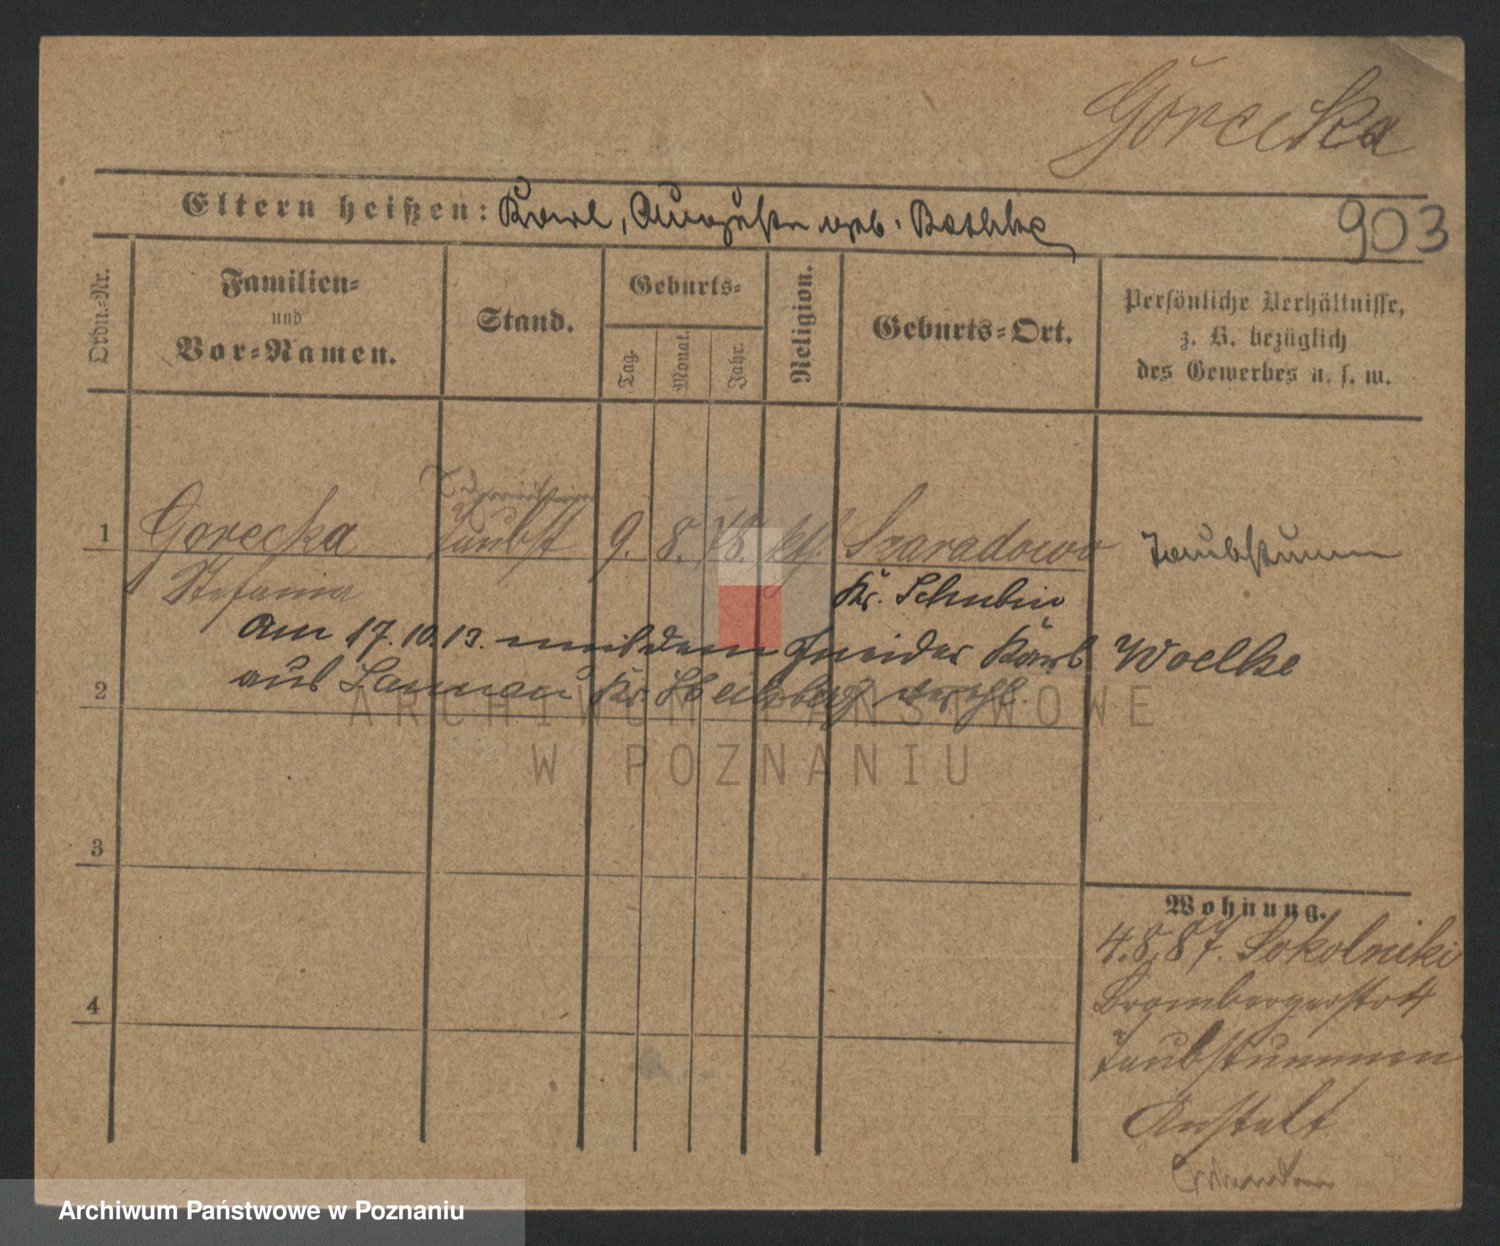 Górecka
Eltern heißen: Karl, Auguste geb. Bethke
903
Ordn.-Nr.
Familien-
und
Vor-Namen.
Stand.
Geburts-
Tag.
Monat.
Jahr.
Religion.
Geburts-Ort.
Persönliche Verhältnisse,
z. B. bezüglich
des Gewerbes u. s. w.
1 Gorecka Taubst 9. 8. 78. kt. Szaradowo Taubstumm
Stefania
Kr. Schubin
Am 17.10.13. mit dem Schneider Karl Woelke
aus Kr. Heilsberg verehl.
2
3
4
Wohnung.
4.8.87. Sokolniki
Brombergerstr 4
Taubstummen
Anstalt
ARCHIWUM PAŃSTWOWE
W POZNANIU
Archiwum Państwowe w Poznaniu